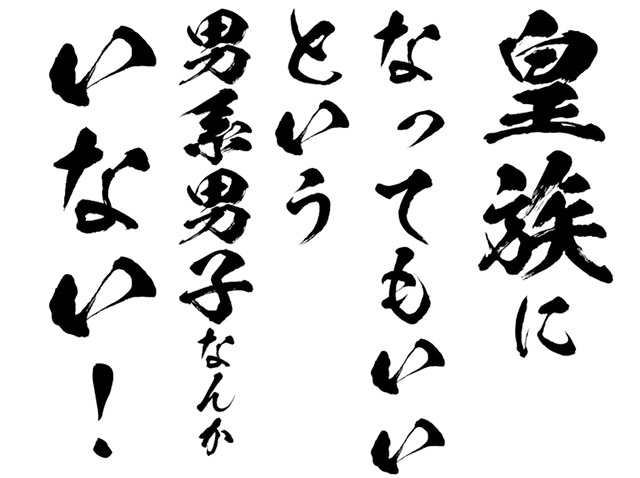 皇族に
なってもいい
という
男系男子なんか
いない!